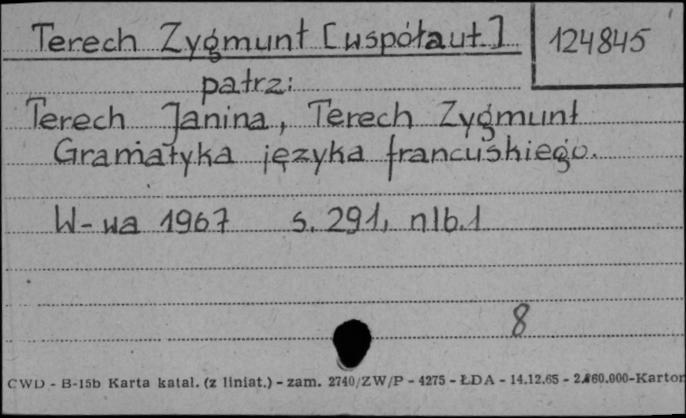 Terech Zygmunt [współaut.]
124845
patrz:
Terech Janina, Terech Zygmunt
Gramatyka języka francuskiego.
W-wa 1967 s. 291, nlb. 1
8
CWD - B-15b Karta katal. (z liniat.) - zam. 2740/ZW/P - 4275 - ŁDA - 14.12.65 - 2.860.000-Karton